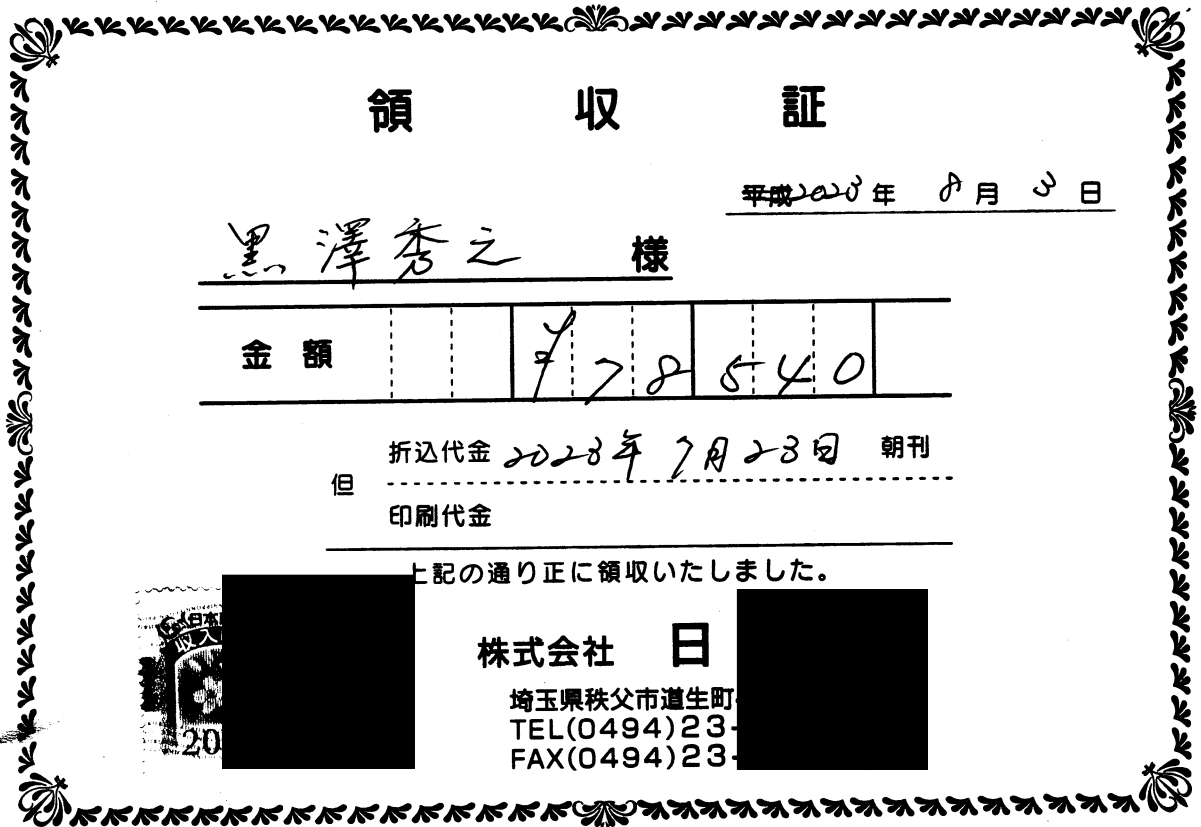 領収証
平成2023年 8月 3日
黒澤秀之 様
金額 ¥78540
折込代金 2023年7月23日 朝刊
但
印刷代金
上記の通り正に領収いたしました。
日本
収入
20
株式会社 日
埼玉県秩父市道生町
TEL(0494)23-
FAX(0494)23-